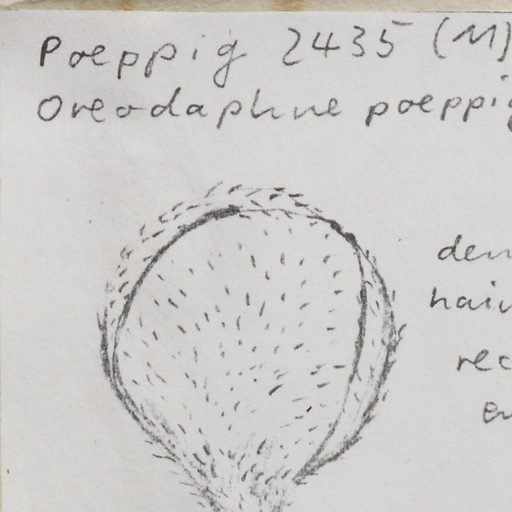 Poeppig 2435 (M)
Oreodaphne poeppig
den
hair
rec